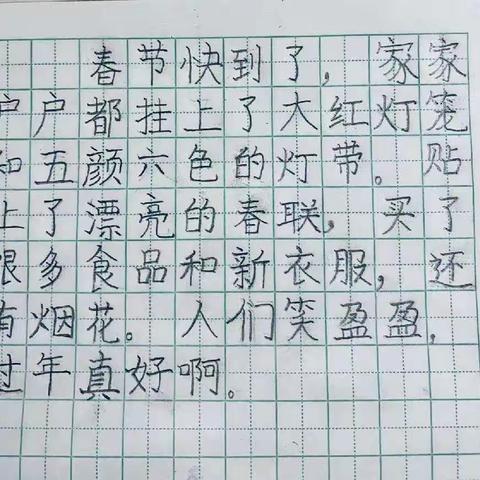 春节快到了，家家
户户都挂上了大红灯笼
和五颜六色的灯带。贴
上了漂亮的春联，买了
很多食品和新衣服，还
有烟花。人们笑盈盈，
过年真好啊。